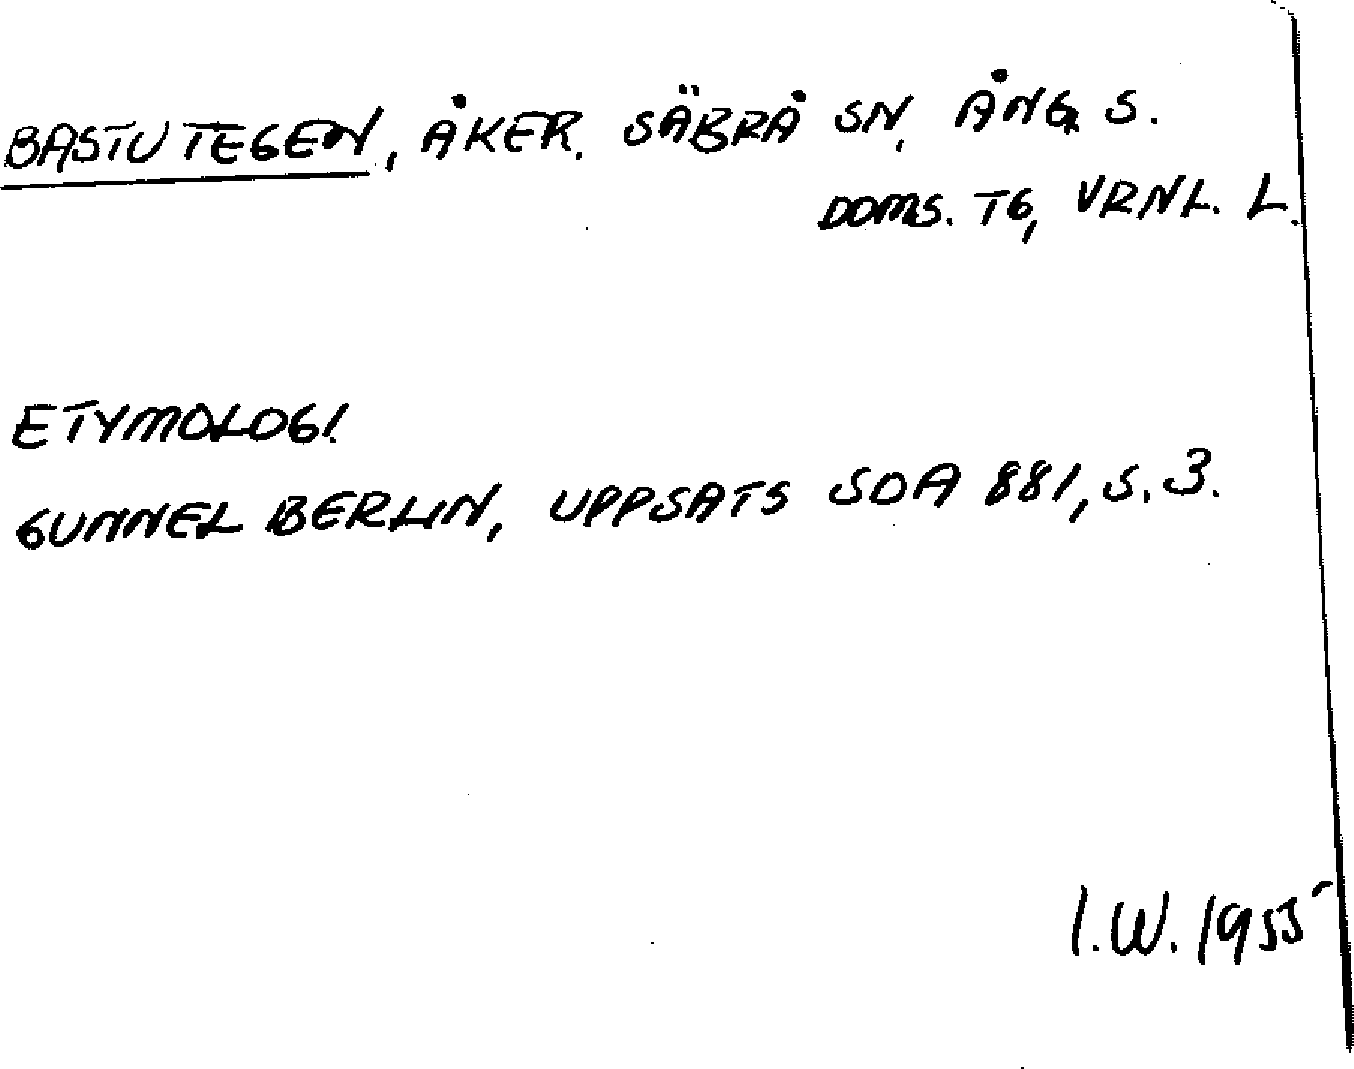 BASTUTEGEN, ÅKER. SÄBRÅ SN, ÅNG. S.
DOMS. TG, VRNL. L.
ETYMOLOGI.
GUNNEL BERLIN, UPPSATS SOA 881, S. 3.
I.W. 1955